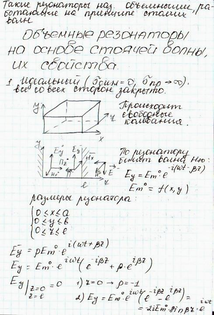 Такие резонаторы наз. объемными, ра-
ботающие на принципе стоячих
волн.
Объемные резонаторы
на основе стоячей волны,
их свойства.
1. идеальный (σ = 0, σпр → ∞).
все со всех сторон закрыто.
y
x
z
Происходят
свободные
колебания.
По резонатору
бежит волна H10:
Ey = Em° e
Em° = f(x, y)
размеры резонатора:
0 ≤ x ≤ a
0 ≤ y ≤ b
0 ≤ z ≤ l
Ey = ρEm° e^{i(ωt+βz)}
Ey = Em° e^{iωt}(e^{-iβz} + ρ e^{iβz})
Ey | z=0 z=l = 0 1) z=0 → ρ=-1
2) Ey = Em° e^{iωt}(e^{-iβz} - e^{iβz}) =